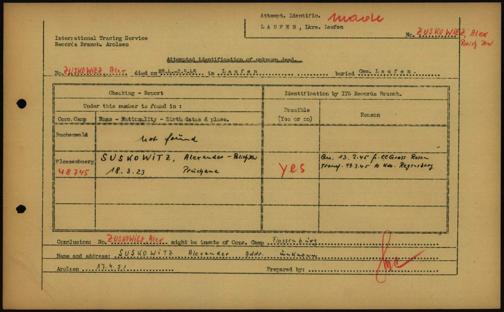 Attempt. Identific. made
LAUFEN, Lkrs. Laufen
International Tracing Service
Records Branch. Arolsen
No. ZUSKOWIEZ, Alex
Attempted identification of unknown dead.
No. ZUSKOWIEZ Alex died on in Laufen buried Gem. Laufen
Checking - Report
Identification by ITS Records Branch.
Under this number is found in :
Possible
(Yes or no)
Reason
Conc. Camp
Name - Nationality - Birth dates & place.
Buchenwald
not found
Flossenburg
48745
SUSKOWITZ, Alexander -
18.3.23 Pruzana
yes
Arr. 13.2.45 fr. CC Gross Rosen
transf. 19.3.45 to Kdo. Regensburg
Conclusion: No. ZUSKOWIEZ Alex might be inmate of Conc. Camp Flossenbürg
Name and address: SUSKOWITZ Alexander Addr. unknown
Arolsen
Prepared by: